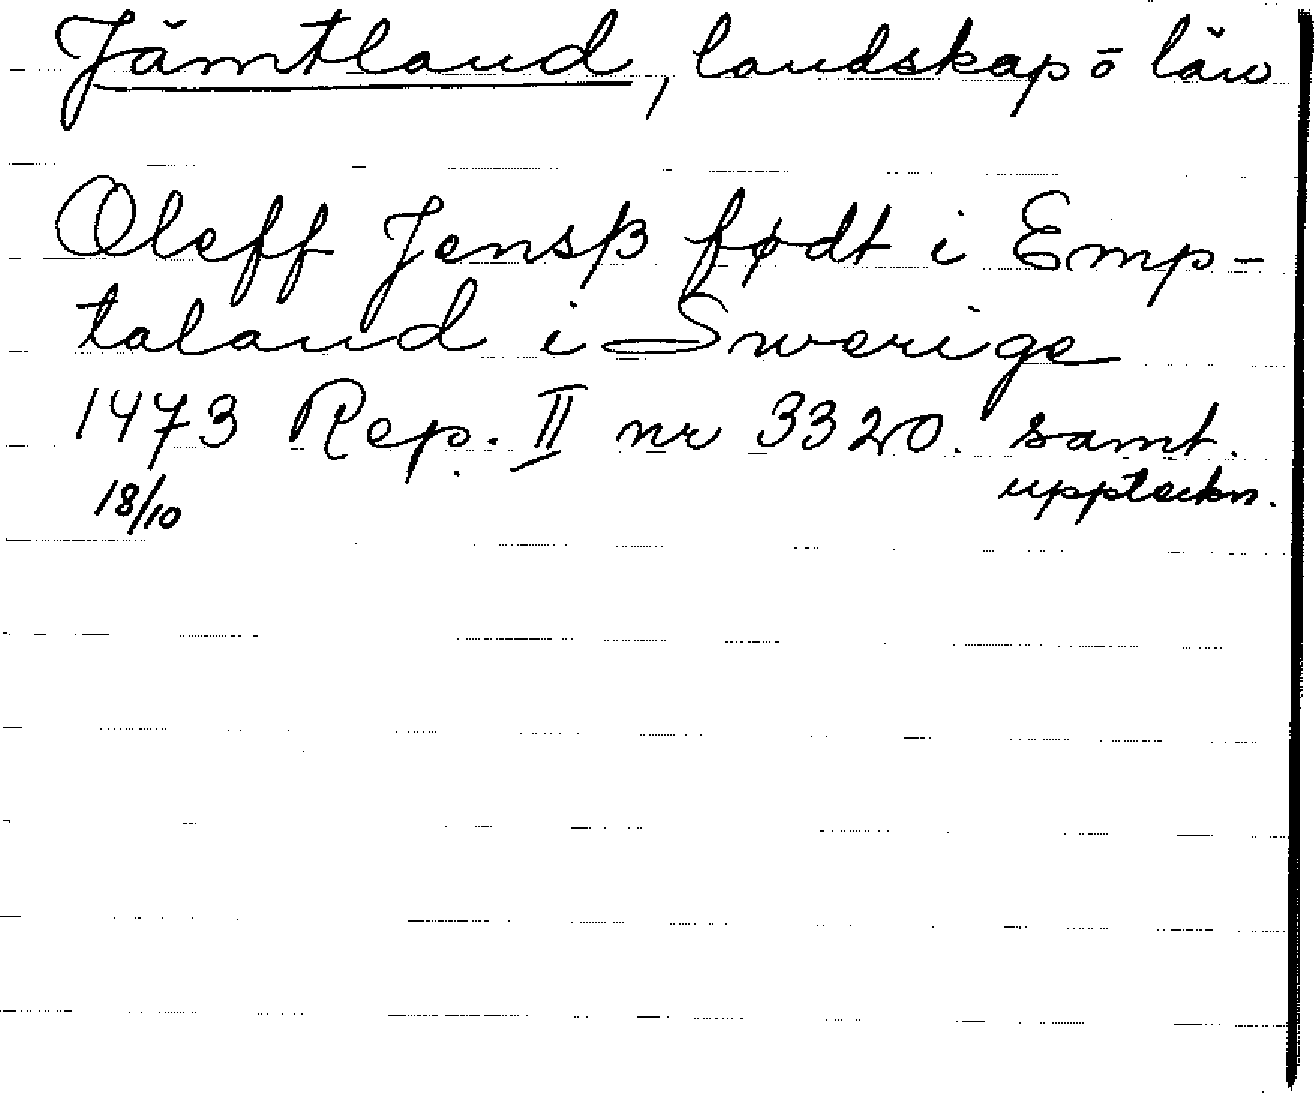 Jämtland, landskap o län
Oleff Jensß født i Emp-
taland i Swerige
1473 Rep. II nr 3320. samt.
18/10 uppteckn.